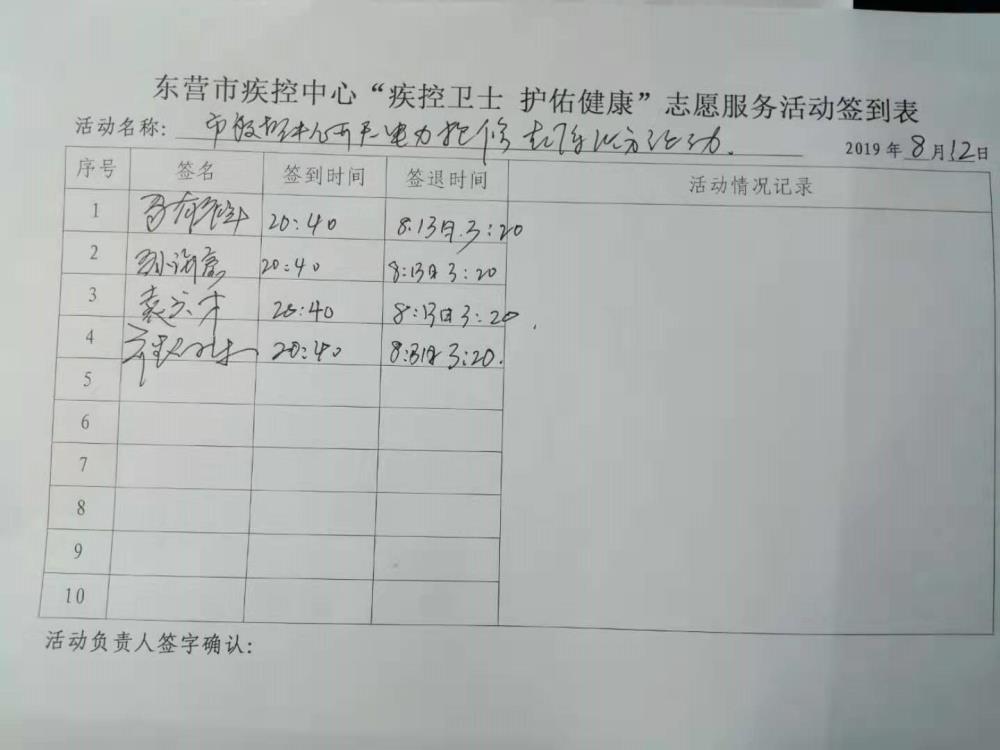 东营市疾控中心“疾控卫士 护佑健康”志愿服务活动签到表
活动名称: 电力抢修
2019 年 8 月 12 日
序号 签名 签到时间 签退时间 活动情况记录
1 20:40 8.13日.3:20
2 20:40 8:13日3:20
3 袁云才 20:40 8:13日3:20.
4 20:40 8:31日3:20.
5
6
7
8
9
10
活动负责人签字确认: